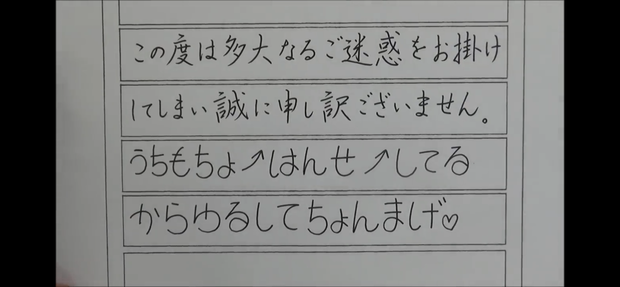 この度は多大なるご迷惑をお掛け
してしまい誠に申し訳ございません。
うちもちょ↗はんせ↗してる
からゆるしてちょんまげ♡